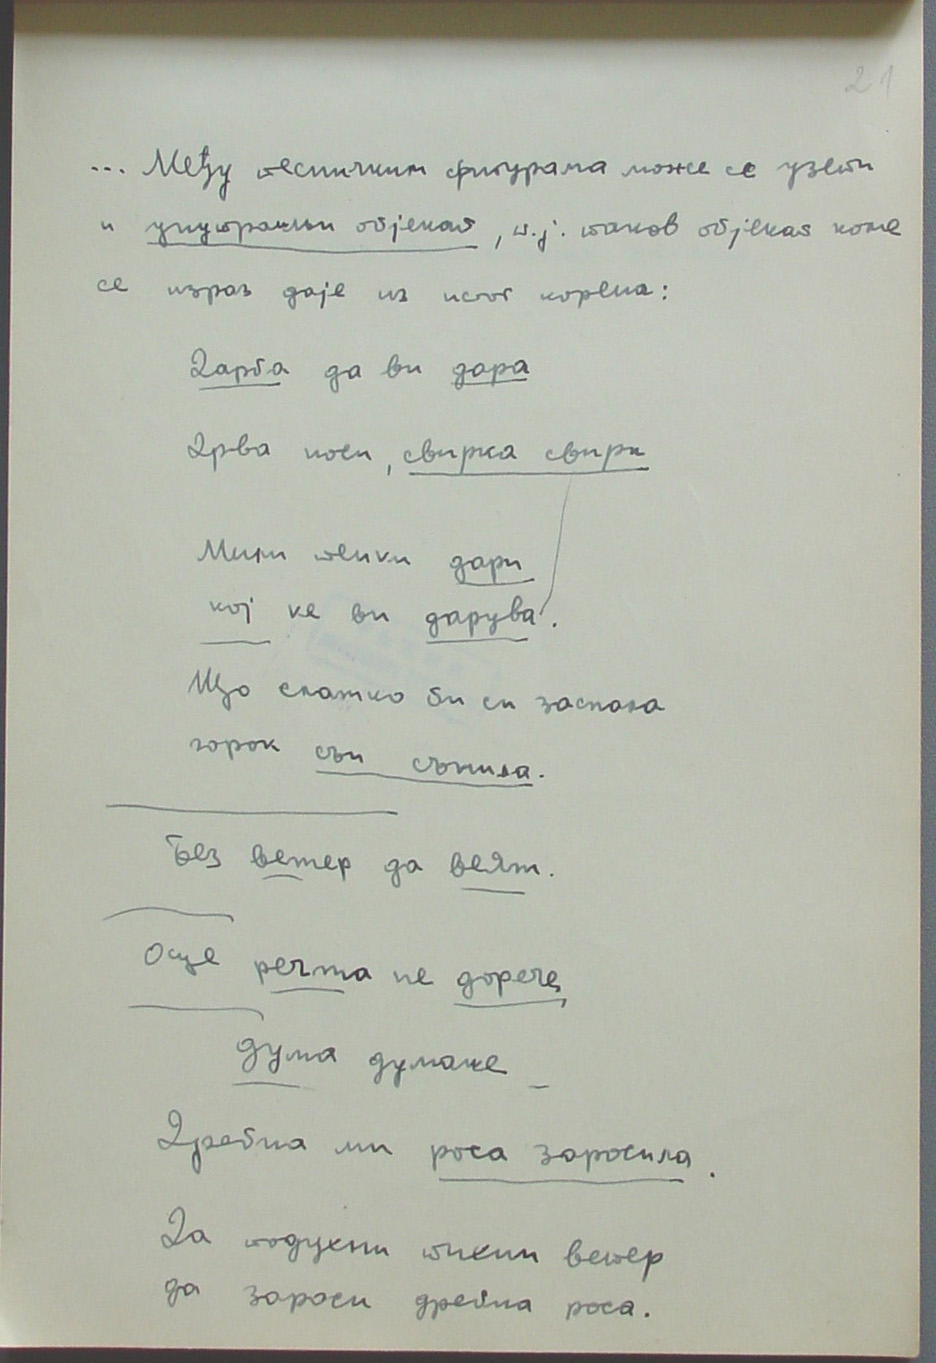 21
... Међу песничким фигурама може се узети
и унутрашњи објекат, т.ј. таков објекат коме
се израз даје из истог корена:
Дарба да ви дара
Дрва носи, свирка свири
Мили тейки дари
кој ке ви дарува.
Що слатко би си заспала
горок сън сънила.
Без ветер да веят.
Осце речта не дорече,
дума думаше –
Дребна ми роса заросила.
Да подухни тихии ветер
да зароси дребна роса.